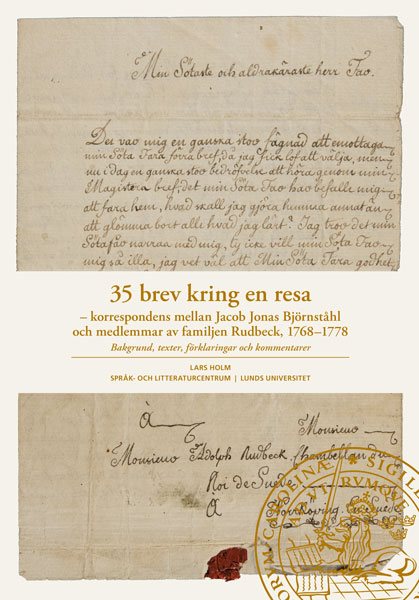 Min Sötaste och aldrakäraste herr Far.
Det var mig en ganska stor fägnad att emottaga
min Söta Fars förra bref, då jag fick lof att välja, men
nu i dag en ganska stor bedröfvelse att höra genom min
Magisters bref, det min Söta Far har befalt mig
att fara hem, hvad skall jag gjöra hemma annat än
att glömma bort alt hvad jag lärt? Jag tror det min
Söta far narras med mig, ty icke vill min Söta Far
mig så illa, jag vet väl att Min Söta Fars godhet
35 brev kring en resa
– korrespondens mellan Jacob Jonas Björnståhl
och medlemmar av familjen Rudbeck, 1768–1778
Bakgrund, texter, förklaringar och kommentarer
LARS HOLM
SPRÅK- OCH LITTERATURCENTRUM | LUNDS UNIVERSITET
À Monsieur
Monsieur Adolph Rudbeck, Chambellan du
Roi de Suede
À Norrkoping en Suede
CAROLINÆ SIGILL
VTRVMQUE